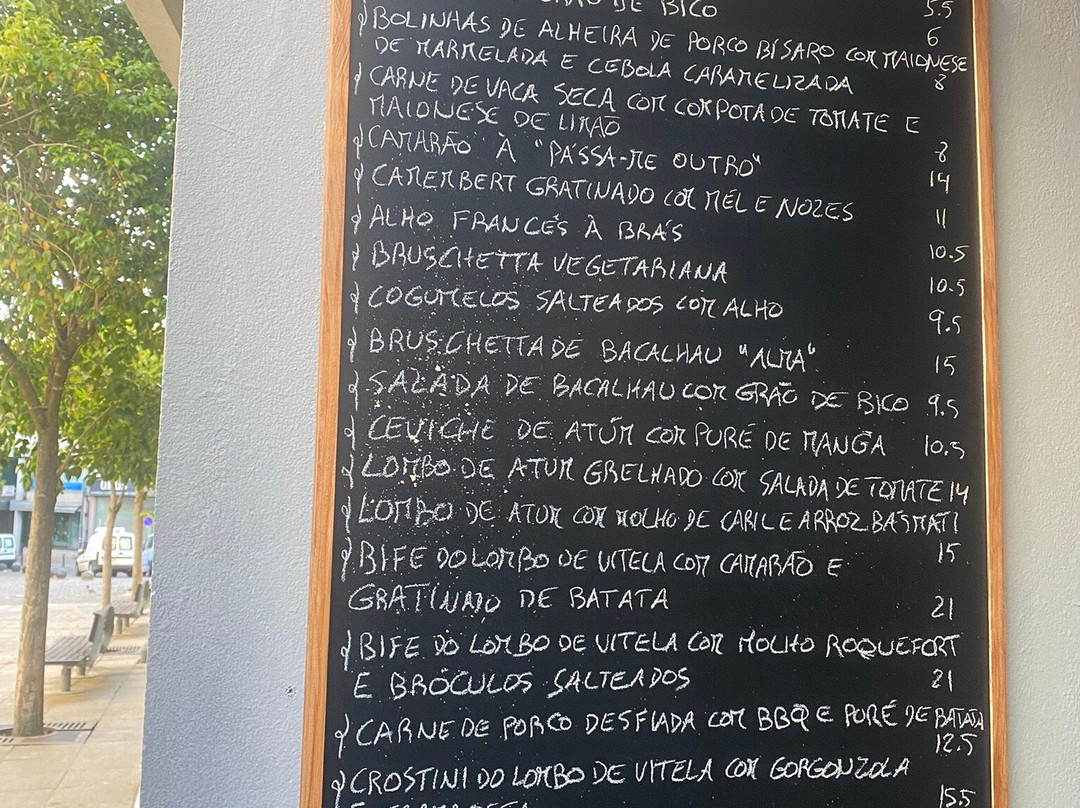 DE BICO 5.5
BOLINHAS DE ALHEIRA DE PORCO BÍSARO COM MAIONESE 6
DE MARMELADA E CEBOLA CARAMELIZADA 8
CARNE DE VACA SECA COM COMPOTA DE TOMATE E
MAIONESE DE LIMÃO 8
CAMARÃO À "PASSA-ME OUTRO" 14
CAMEMBERT GRATINADO COM MEL E NOZES 11
ALHO FRANCÊS À BRÁS 10.5
BRUSCHETTA VEGETARIANA 10.5
COGUMELOS SALTEADOS COM ALHO 9.5
BRUSCHETTA DE BACALHAU "ALMA" 15
SALADA DE BACALHAU COM GRÃO DE BICO 9.5
CEVICHE DE ATÚM COM PURÉ DE MANGA 10.5
LOMBO DE ATUM GRELHADO COM SALADA DE TOMATE 14
LOMBO DE ATUM COM MOLHO DE CARIL E ARROZ BÁSMATI
15
BIFE DO LOMBO DE VITELA COM CAMARÃO E
GRATINADO DE BATATA 21
BIFE DO LOMBO DE VITELA COM MOLHO ROQUEFORT
E BRÓCULOS SALTEADOS 21
CARNE DE PORCO DESFIADA COM BBQ E PURÉ DE BATATA
12.5
CROSTINI DO LOMBO DE VITELA COM GORGONZOLA
15.5